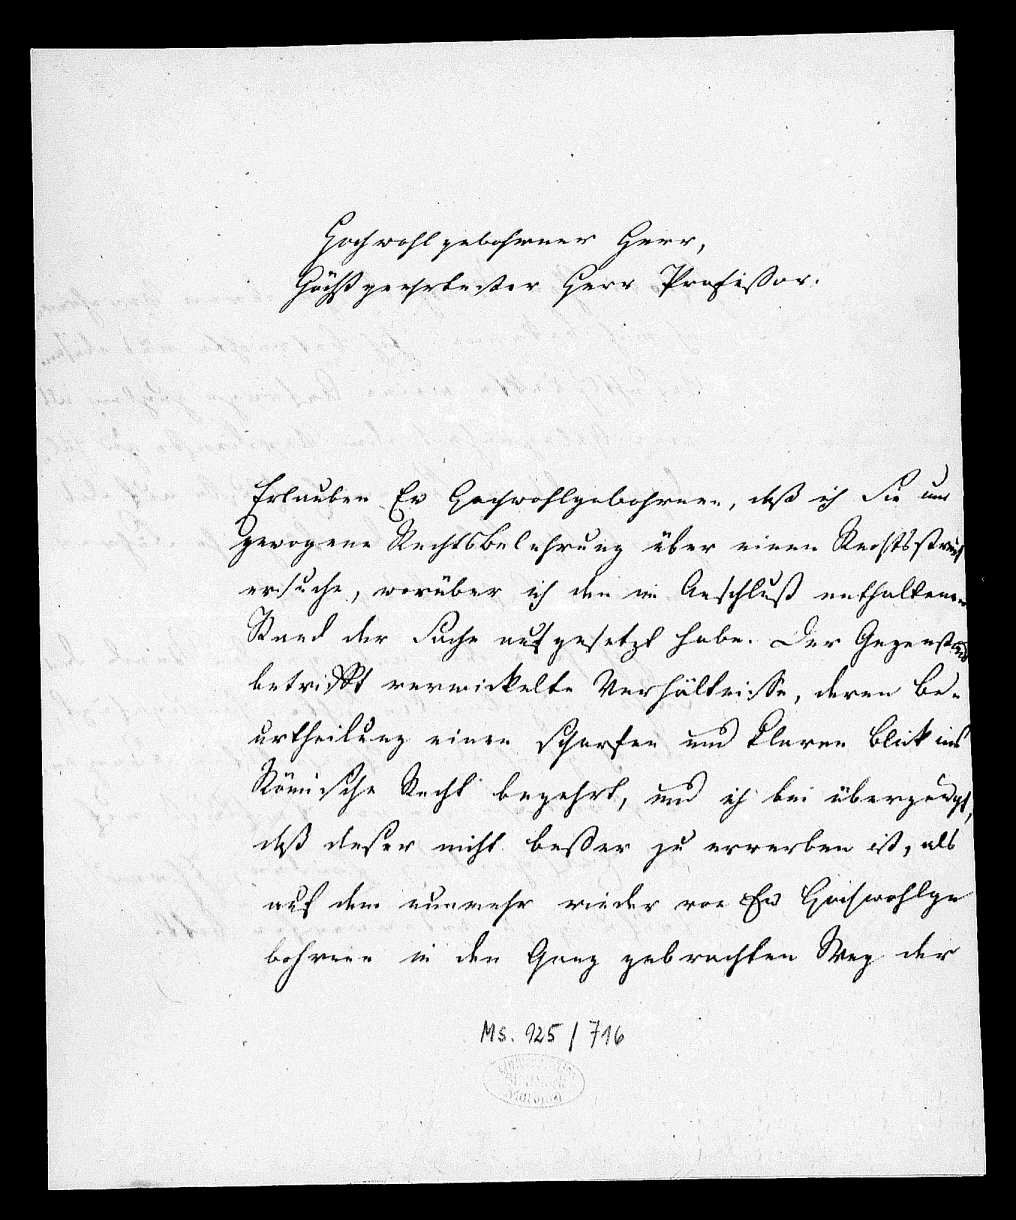 Hochwohlgebohrner Herr,
Höchstgeehrtester Herr Professor.
Erlauben Ew Hochwohlgebohrnen, daß ich Sie um
gewogene Rechtsbelehrung über einen Rechtsstreit
ersuche, worüber ich den im Anschluß enthaltenen
Stand der Sache aufgesetzt habe. Der Gegenstand
betrifft verwickelte Verhältnisse, deren Be-
urtheilung einen scharfen und klaren Blick ins
Römische Recht begehrt, und ich bin überzeugt,
daß dieser nicht besser zu erwerben ist, als
auf dem nunmehr wieder von Ew Hochwohlge
bohrnen in den Gang gebrachten Weg der
Ms. 125 / 716